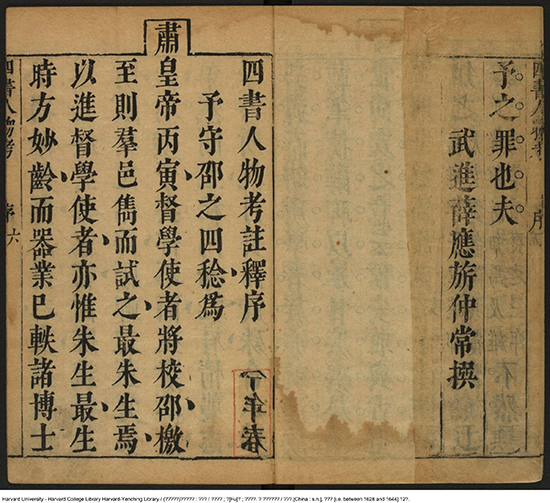 四書人物考 序
予之罪也夫
武進薛應旂仲常撰
四書人物考註釋序
予守邵之四稔為
肅皇帝丙寅督學使者將校邵檄
至則羣邑雋而試之最朱生焉
以進督學使者亦惟朱生最生
時方妙齡而器業已軼諸博士
四書人物考 序 六
Harvard University - Harvard College Library Harvard-Yenching Library / (??????)????? : ??? / ???? ; ????. ? ?????? / ???.[China : s.n.], ??? [i.e. between 1628 and 1644] 12?.